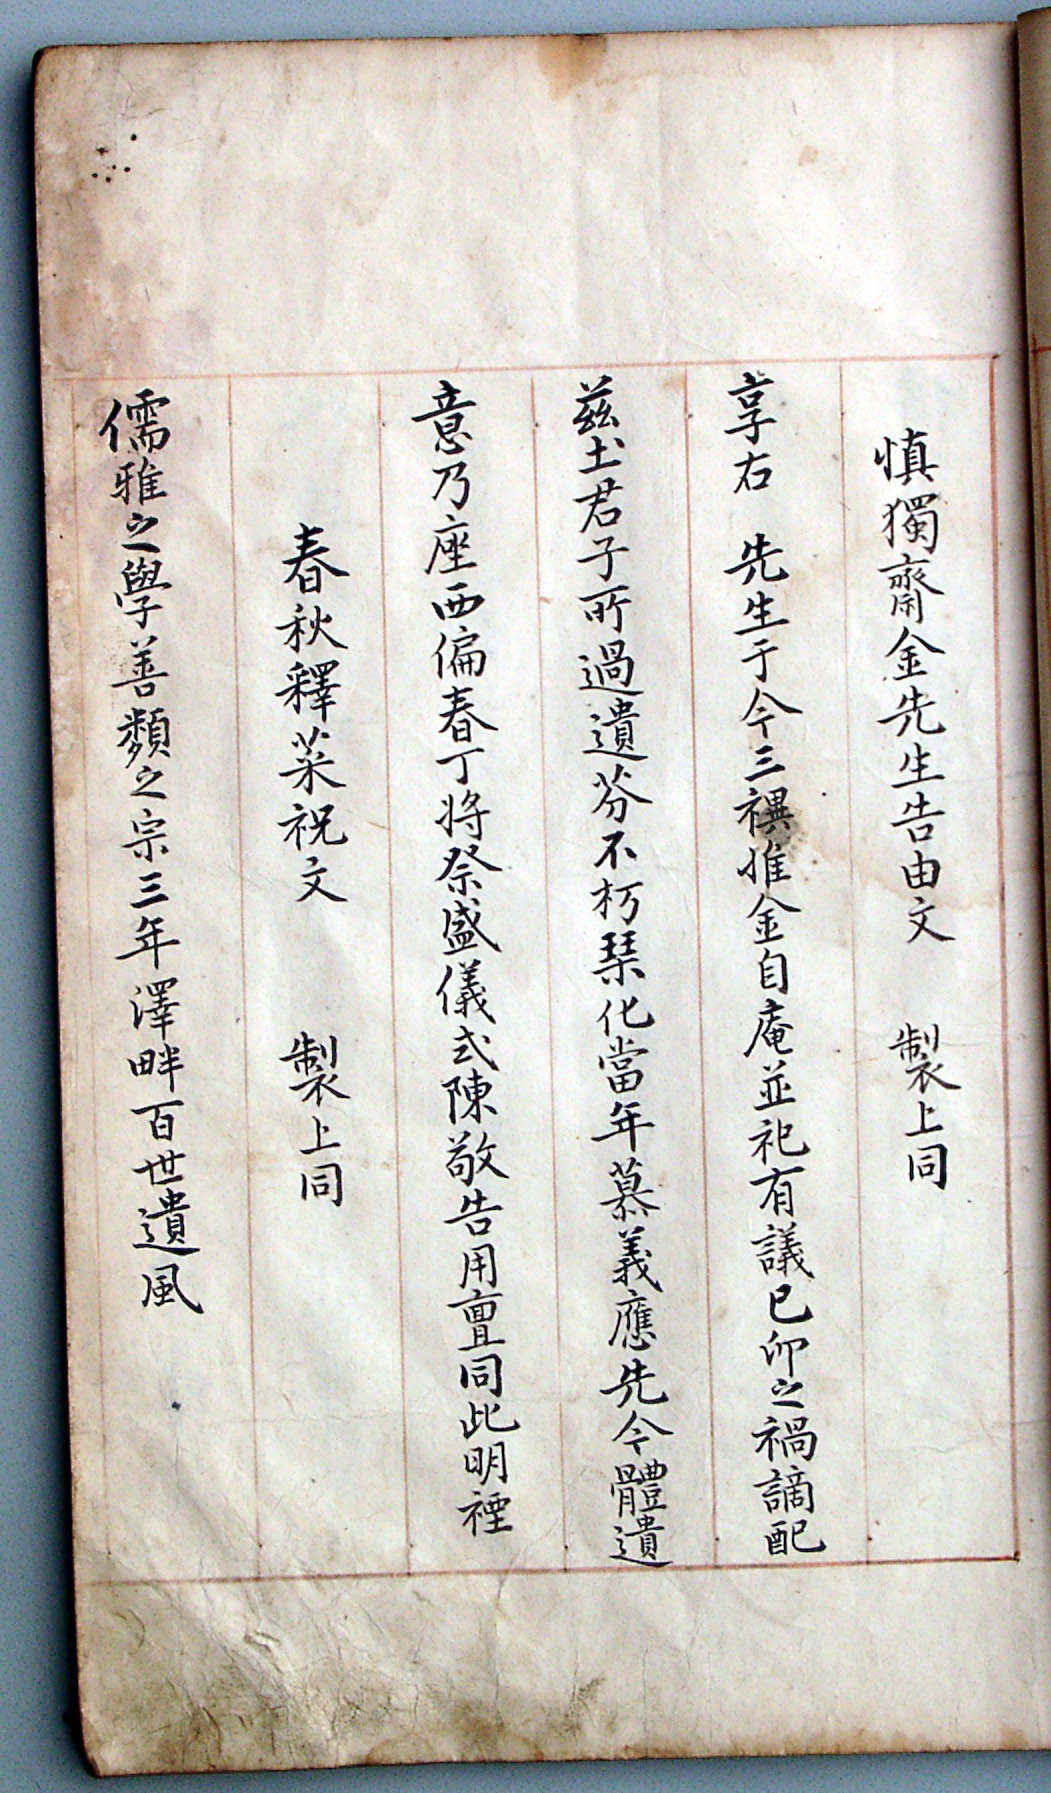 慎獨齋金先生告由文 製上同
享右 先生于今三禩惟金自庵並祀有議己卯之禍謫配
兹土君子所過遺芬不朽琹化當年慕義應先今體遺
意乃座西偏春丁將祭盛儀式陳敬告用亶同此明禋
春秋釋菜祝文 製上同
儒雅之學善類之宗三年澤畔百世遺風